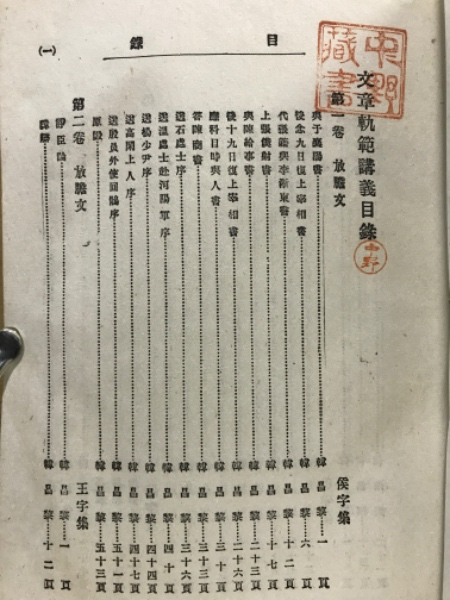 目錄
(一)
中野藏書
文章軌範講義目錄
中野
第一卷 放膽文 侯字集
與于襄陽書 韓昌黎 一頁
後念九日復上宰相書 韓昌黎 六頁
代張籍與李浙東書 韓昌黎 十二頁
上張僕射書 韓昌黎 十七頁
與陳給事書 韓昌黎 二十三頁
後十九日復上宰相書 韓昌黎 二十六頁
應科目時與人書 韓昌黎 三十頁
答陳商書 韓昌黎 三十三頁
送石處士序 韓昌黎 三十六頁
送溫處士赴河陽軍序 韓昌黎 四十頁
送楊少尹序 韓昌黎 四十四頁
送高閑上人序 韓昌黎 四十七頁
送殷員外使回鶻序 韓昌黎 五十一頁
原毀 韓昌黎 五十三頁
第二卷 放膽文 王字集
諍臣論 韓昌黎 一頁
諱辯 韓昌黎 十二頁